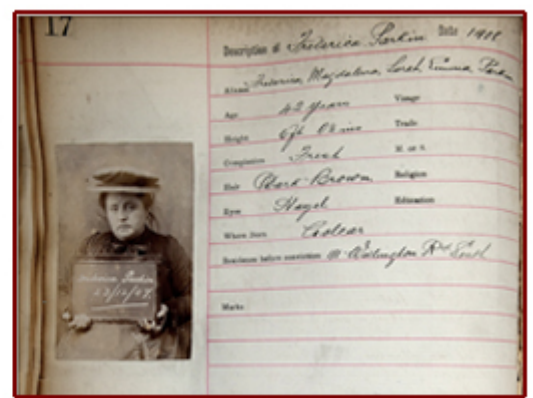 17
Description of Frederica Parkin Date 1908
Alias Frederica, Magdalena, Sarah Emma Parkin
Age 42 years Visage
Height Trade
Complexion Fresh M. or S.
Hair Dark Brown Religion
Eyes Hazel Education
Where born
Residence before conviction
Marks
Frederica Parkin
23/12/07